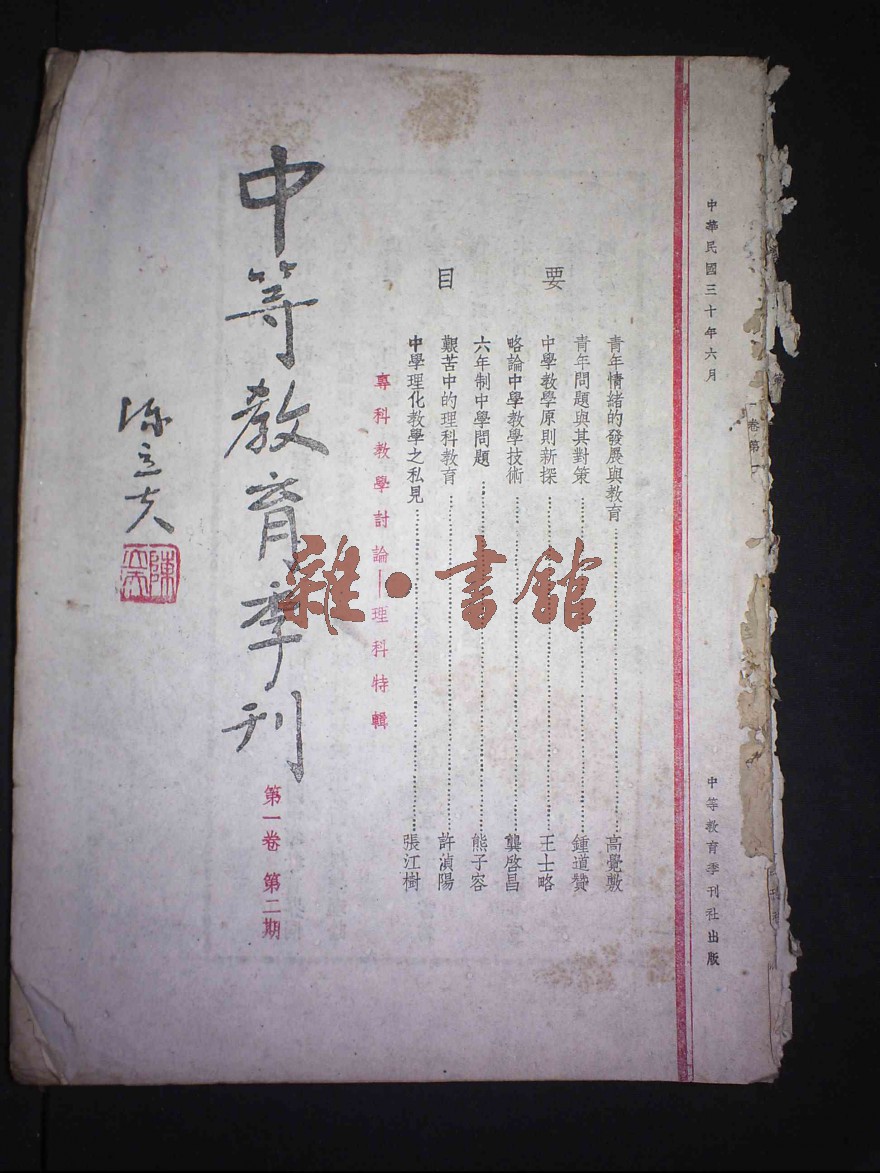 中華民國三十年六月
中等教育季刊社出版
要目
青年情緒的發展與教育……高覺敷
青年問題與其對策……鍾道贊
中學教學原則新探……王士略
略論中學教學技術……龔啓昌
六年制中學問題……熊子容
艱苦中的理科教育……許湞陽
中學理化教學之私見……張江樹
專科教學討論——理科特輯
中等教育季刊
第一卷 第二期
陳立夫
雜·書館